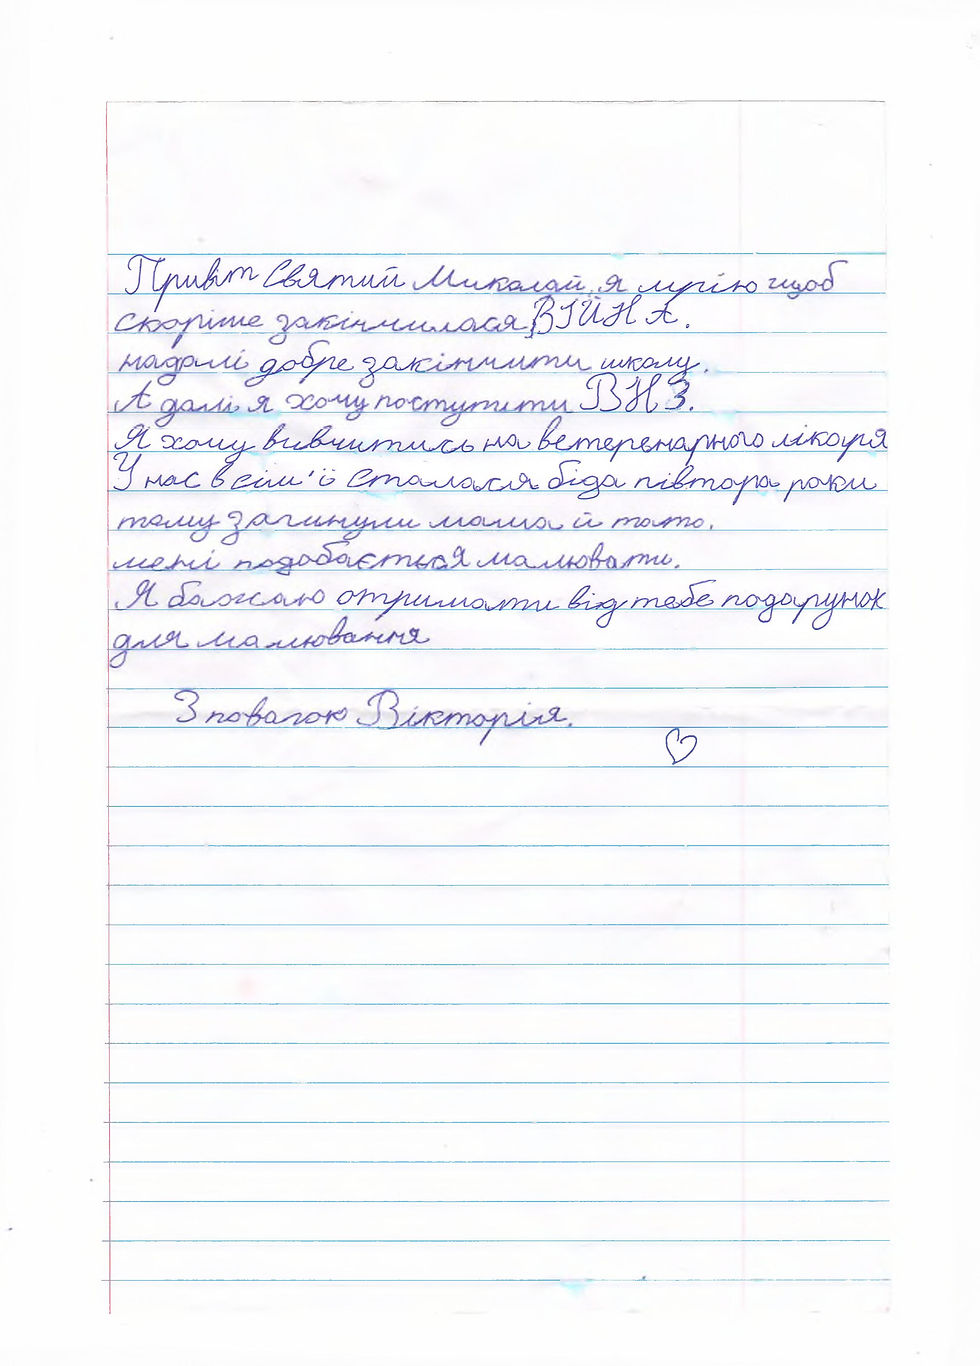 Привіт Святий Миколай, я мрію щоб
скоріше закінчилася ВІЙНА.
надалі добре закінчити школу.
А далі я хочу поступити ВНЗ.
Я хочу вивчитись на ветеренарного лікаря
У нас в сім'ї сталася біда півтора роки
тому загинули мама й тато.
мені подобається малювати.
Я бажаю отримати від тебе подарунок
для малювання
З повагою Вікторія.